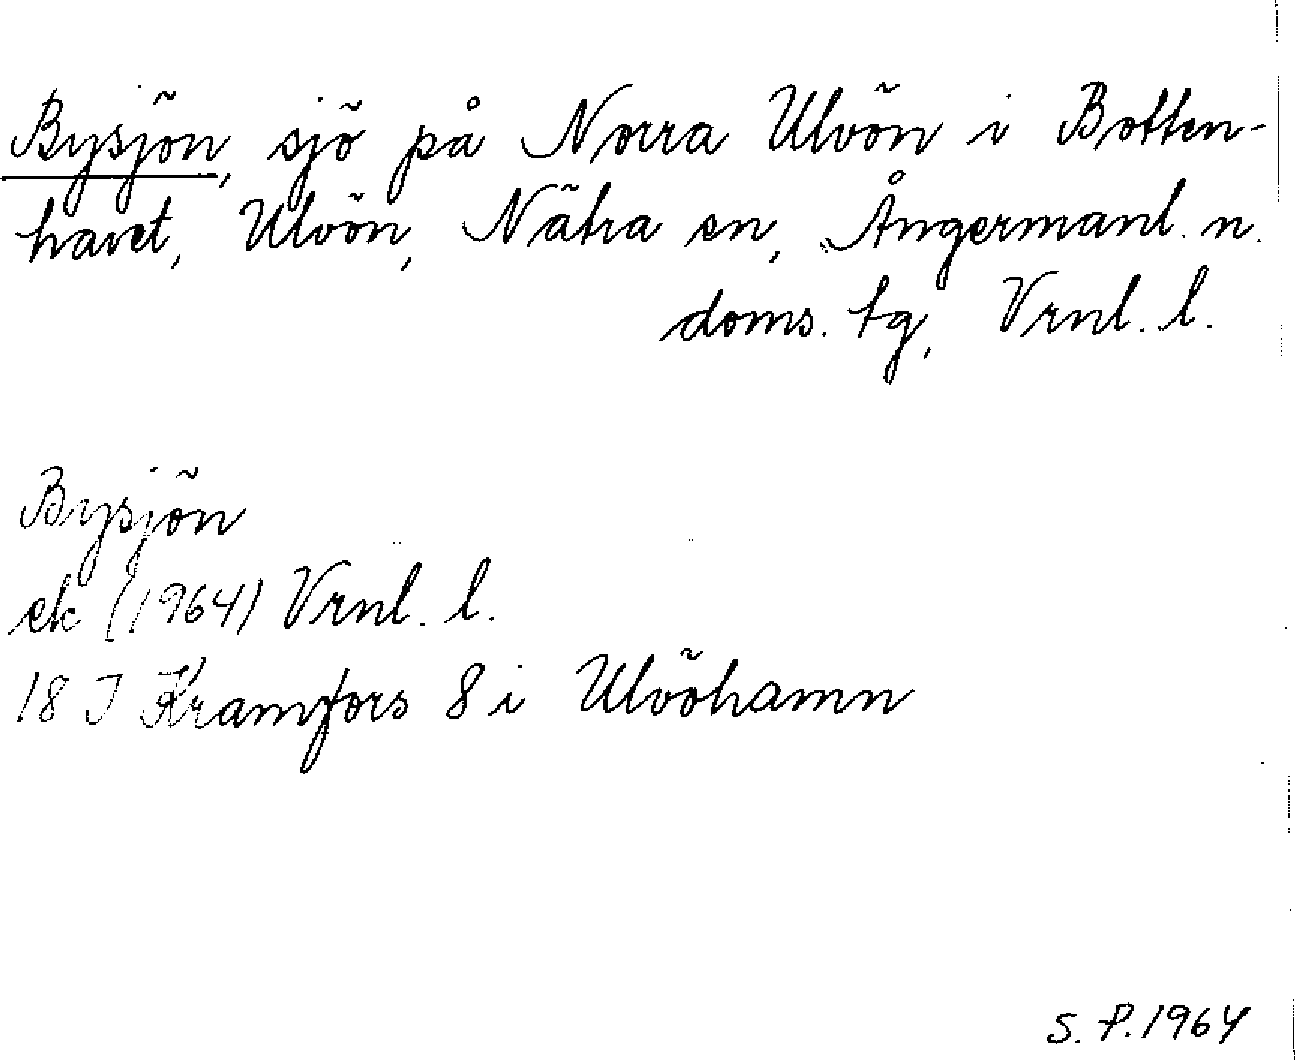 Bysjön, sjö på Norra Ulvön i Botten-
havet, Ulvön, Nätra sn, Ångermanl. n.
doms. tg, Vrnl. l.
Bysjön
ek (1964) Vrnl. l.
18 J Kramfors 8 i Ulvöhamn
S. P. 1964